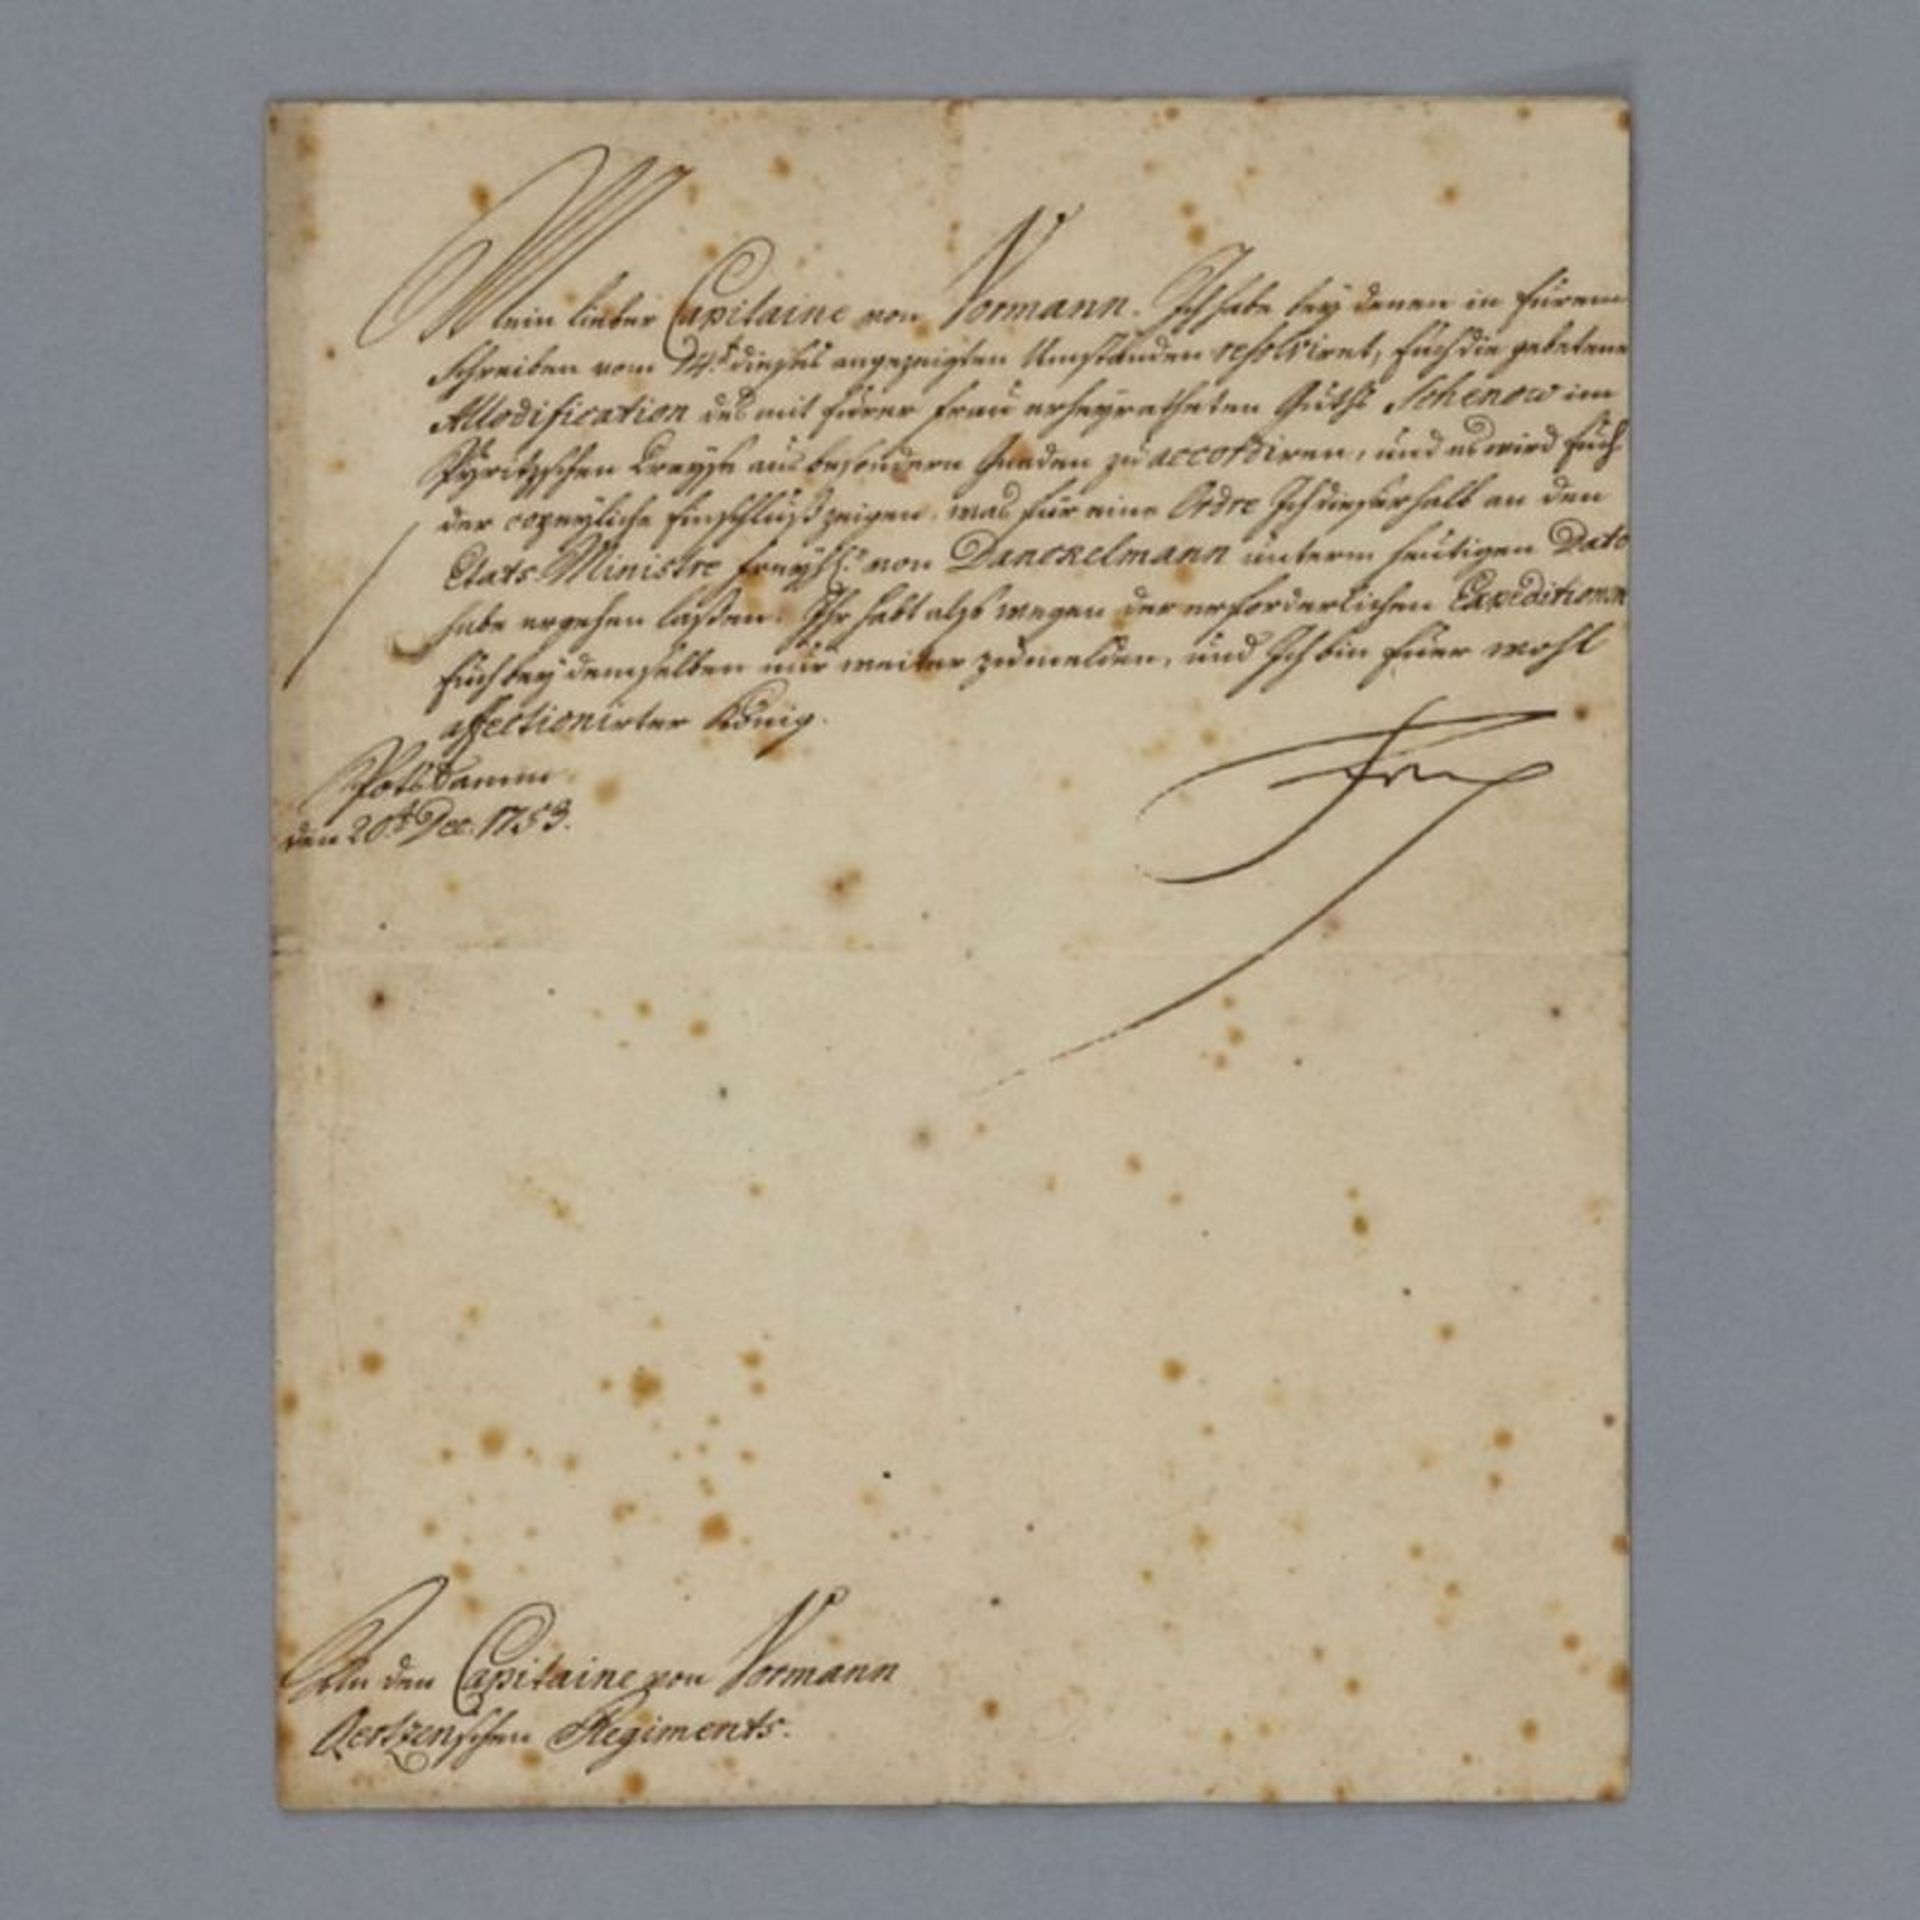 Mein lieber Capitaine von Vormann. Ich habe bey denen in Eurem
Schreiben vom 14t. dieses angezeigten Umständen resolviret, Euch die gebetene
Allodification des mit Eurer Frau erheyratheten Guths Schenow im
Pyritzschen Creyse aus besondern Gnaden zu accordiren, und es wird Euch
der copeyliche Einschluß zeigen, was für eine Ordre Ich dieserhalb an den
Etats-Ministre Freyh. von Danckelmann unterm heutigen Dato
habe ergehen laßen. Ihr habt also wegen der erforderlichen Expeditionen
Euch bey demselben nur weiter zu melden, und Ich bin Euer wohl
affectionirter König.
Potsdamm
den 20t. Dec. 1753.
Frch
An den Capitaine von Vormann
Oertzenschen Regiments.